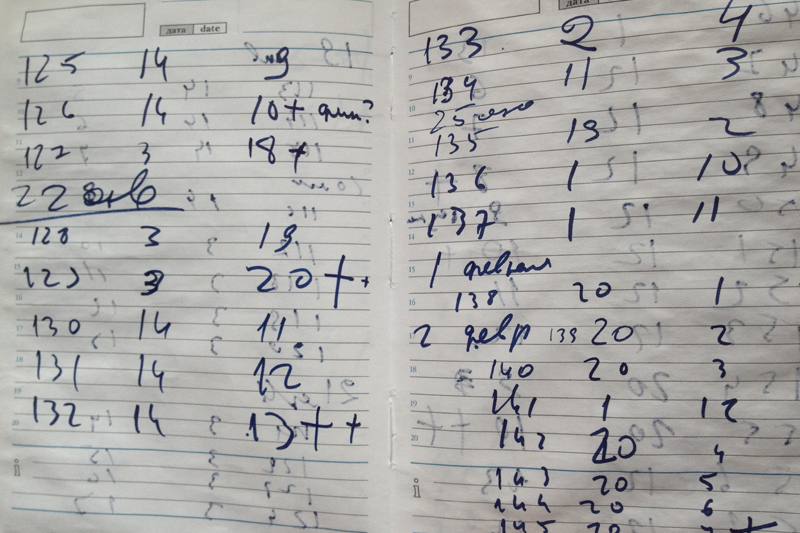 дата date
125 14 9
126 14 10+
127 3 18+
22 янв
128 3 19
129 3 20++
130 14 11
131 14 12
132 14 13++
133 2 4
134 11 3
25 янв
135 19 2
136 1 10
137 1 11
1 февраля
138 20 1
2 февр 139 20 2
140 20 3
141 1 12
142 20 4
143 20 5
144 20 6
145 20